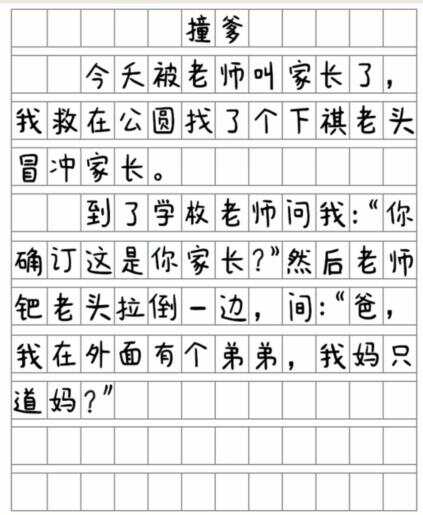 撞爹
今天被老师叫家长了，
我救在公圆找了个下祺老头
冒冲家长。
到了学枚老师问我:“你
确订这是你家长?”然后老师
钯老头拉倒一边，间:“爸，
我在外面有个弟弟，我妈只
道妈?”